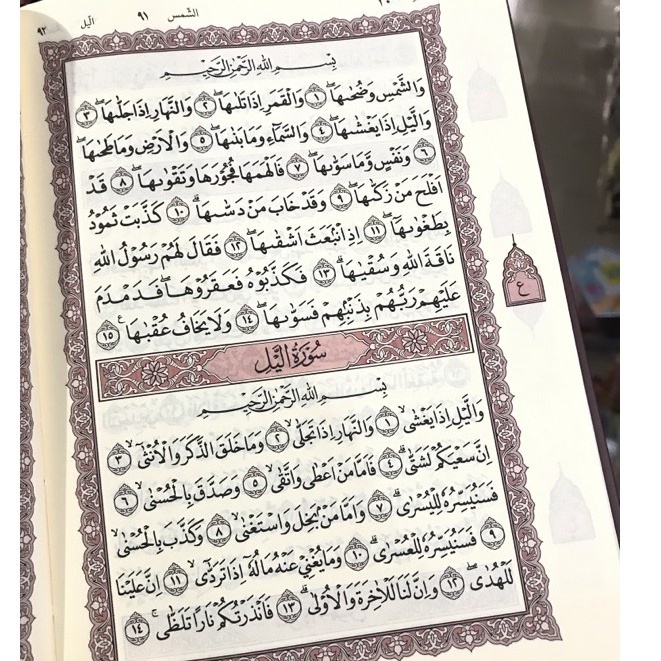 الشمس ٩١ اليل ٩٢
بِسْمِ اللهِ الرَّحْمٰنِ الرَّحِيْمِ
وَالشَّمْسِ وَضُحٰىهَا ۝١ وَالْقَمَرِ اِذَا تَلٰىهَا ۝٢ وَالنَّهَارِ اِذَا جَلّٰىهَا ۝٣
وَالَّيْلِ اِذَا يَغْشٰىهَا ۝٤ وَالسَّمَآءِ وَمَا بَنٰىهَا ۝٥ وَالْاَرْضِ وَمَا طَحٰىهَا
۝٦ وَنَفْسٍ وَّمَا سَوّٰىهَا ۝٧ فَاَلْهَمَهَا فُجُوْرَهَا وَتَقْوٰىهَا ۝٨ قَدْ
اَفْلَحَ مَنْ زَكّٰىهَا ۝٩ وَقَدْ خَابَ مَنْ دَسّٰىهَا ۝١٠ كَذَّبَتْ ثَمُوْدُ
بِطَغْوٰىهَا ۝١١ اِذِ انْۢبَعَثَ اَشْقٰىهَا ۝١٢ فَقَالَ لَهُمْ رَسُوْلُ اللهِ
نَاقَةَ اللهِ وَسُقْيٰهَا ۝١٣ فَكَذَّبُوْهُ فَعَقَرُوْهَا فَدَمْدَمَ
عَلَيْهِمْ رَبُّهُمْ بِذَنْۢبِهِمْ فَسَوّٰىهَا ۝١٤ وَلَا يَخَافُ عُقْبٰهَا ۝١٥
ع
سُوْرَةُ الَّيْلِ
بِسْمِ اللهِ الرَّحْمٰنِ الرَّحِيْمِ
وَالَّيْلِ اِذَا يَغْشٰى ۝١ وَالنَّهَارِ اِذَا تَجَلّٰى ۝٢ وَمَا خَلَقَ الذَّكَرَ وَالْاُنْثٰى ۝٣
اِنَّ سَعْيَكُمْ لَشَتّٰى ۝٤ فَاَمَّا مَنْ اَعْطٰى وَاتَّقٰى ۝٥ وَصَدَّقَ بِالْحُسْنٰى ۝٦
فَسَنُيَسِّرُهٗ لِلْيُسْرٰى ۝٧ وَاَمَّا مَنْۢ بَخِلَ وَاسْتَغْنٰى ۝٨ وَكَذَّبَ بِالْحُسْنٰى
۝٩ فَسَنُيَسِّرُهٗ لِلْعُسْرٰى ۝١٠ وَمَا يُغْنِيْ عَنْهُ مَالُهٗٓ اِذَا تَرَدّٰى ۝١١ اِنَّ عَلَيْنَا
لَلْهُدٰى ۝١٢ وَاِنَّ لَنَا لَلْاٰخِرَةَ وَالْاُوْلٰى ۝١٣ فَاَنْذَرْتُكُمْ نَارًا تَلَظّٰى ۝١٤